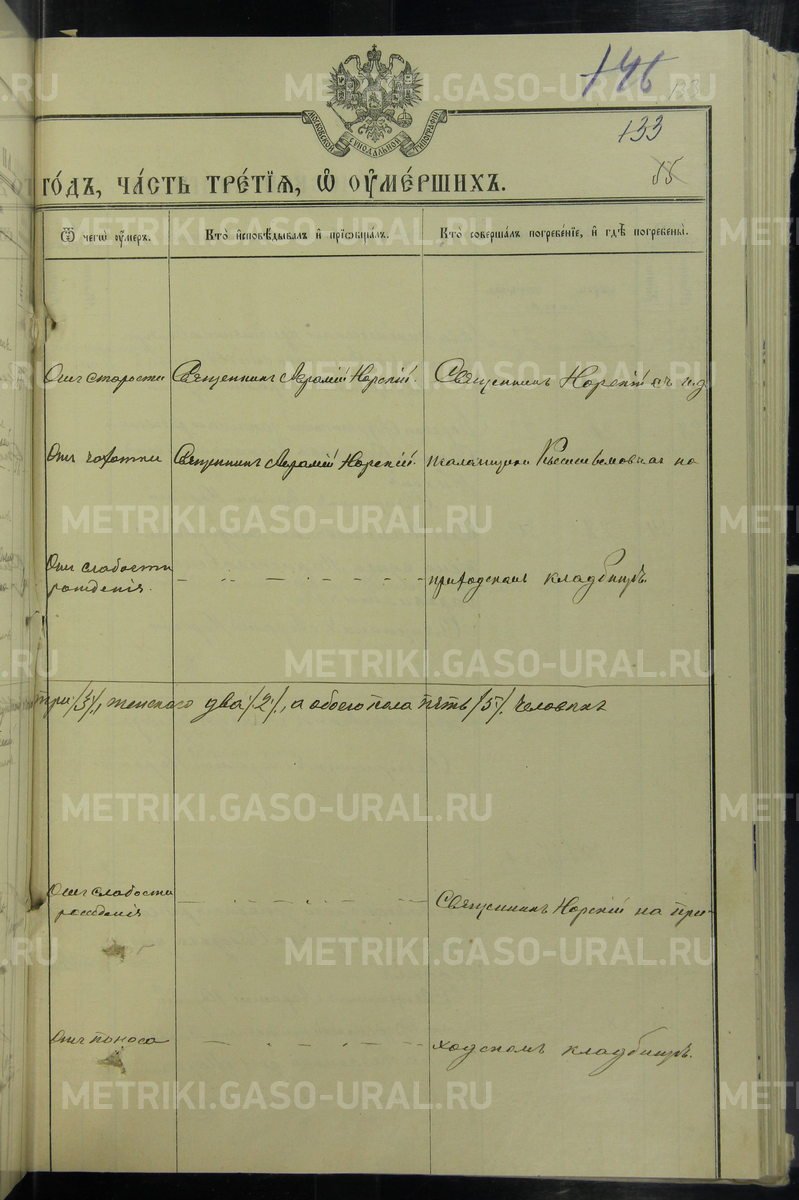 146
133
МОСКОВСКОЙ СѴНОДАЛЬНОЙ ТИПОГРАФІИ
133
55
го́дъ, ча́сть тре́тїѧ, ѡ҆ оу҆ме́ршихъ.
Ѿ чегѡ̀ оу҆́меръ.
Кто̀ и҆сповѣ́дывалъ и҆ прїѡбща́лъ.
Кто̀ соверша́лъ погребе́нїе, и҆ гдѣ̀ погребены̀.
Отъ старости
Священникъ Авраамій Норскій.
Священникъ Норскій съ и.д.
Отъ чахотки
Священникъ Авраамій Норскій.
псаломщика на
Отъ слабости
рожденія.
приходскомъ кладбищѣ.
три /3/, женскаго два /2/, а обоего пола пять /5/ человѣкъ
Отъ слабости
рожденія
Священникъ Норскій на при-
Отъ поноса
ходскомъ кладбищѣ.
METRIKI.GASO-URAL.RU